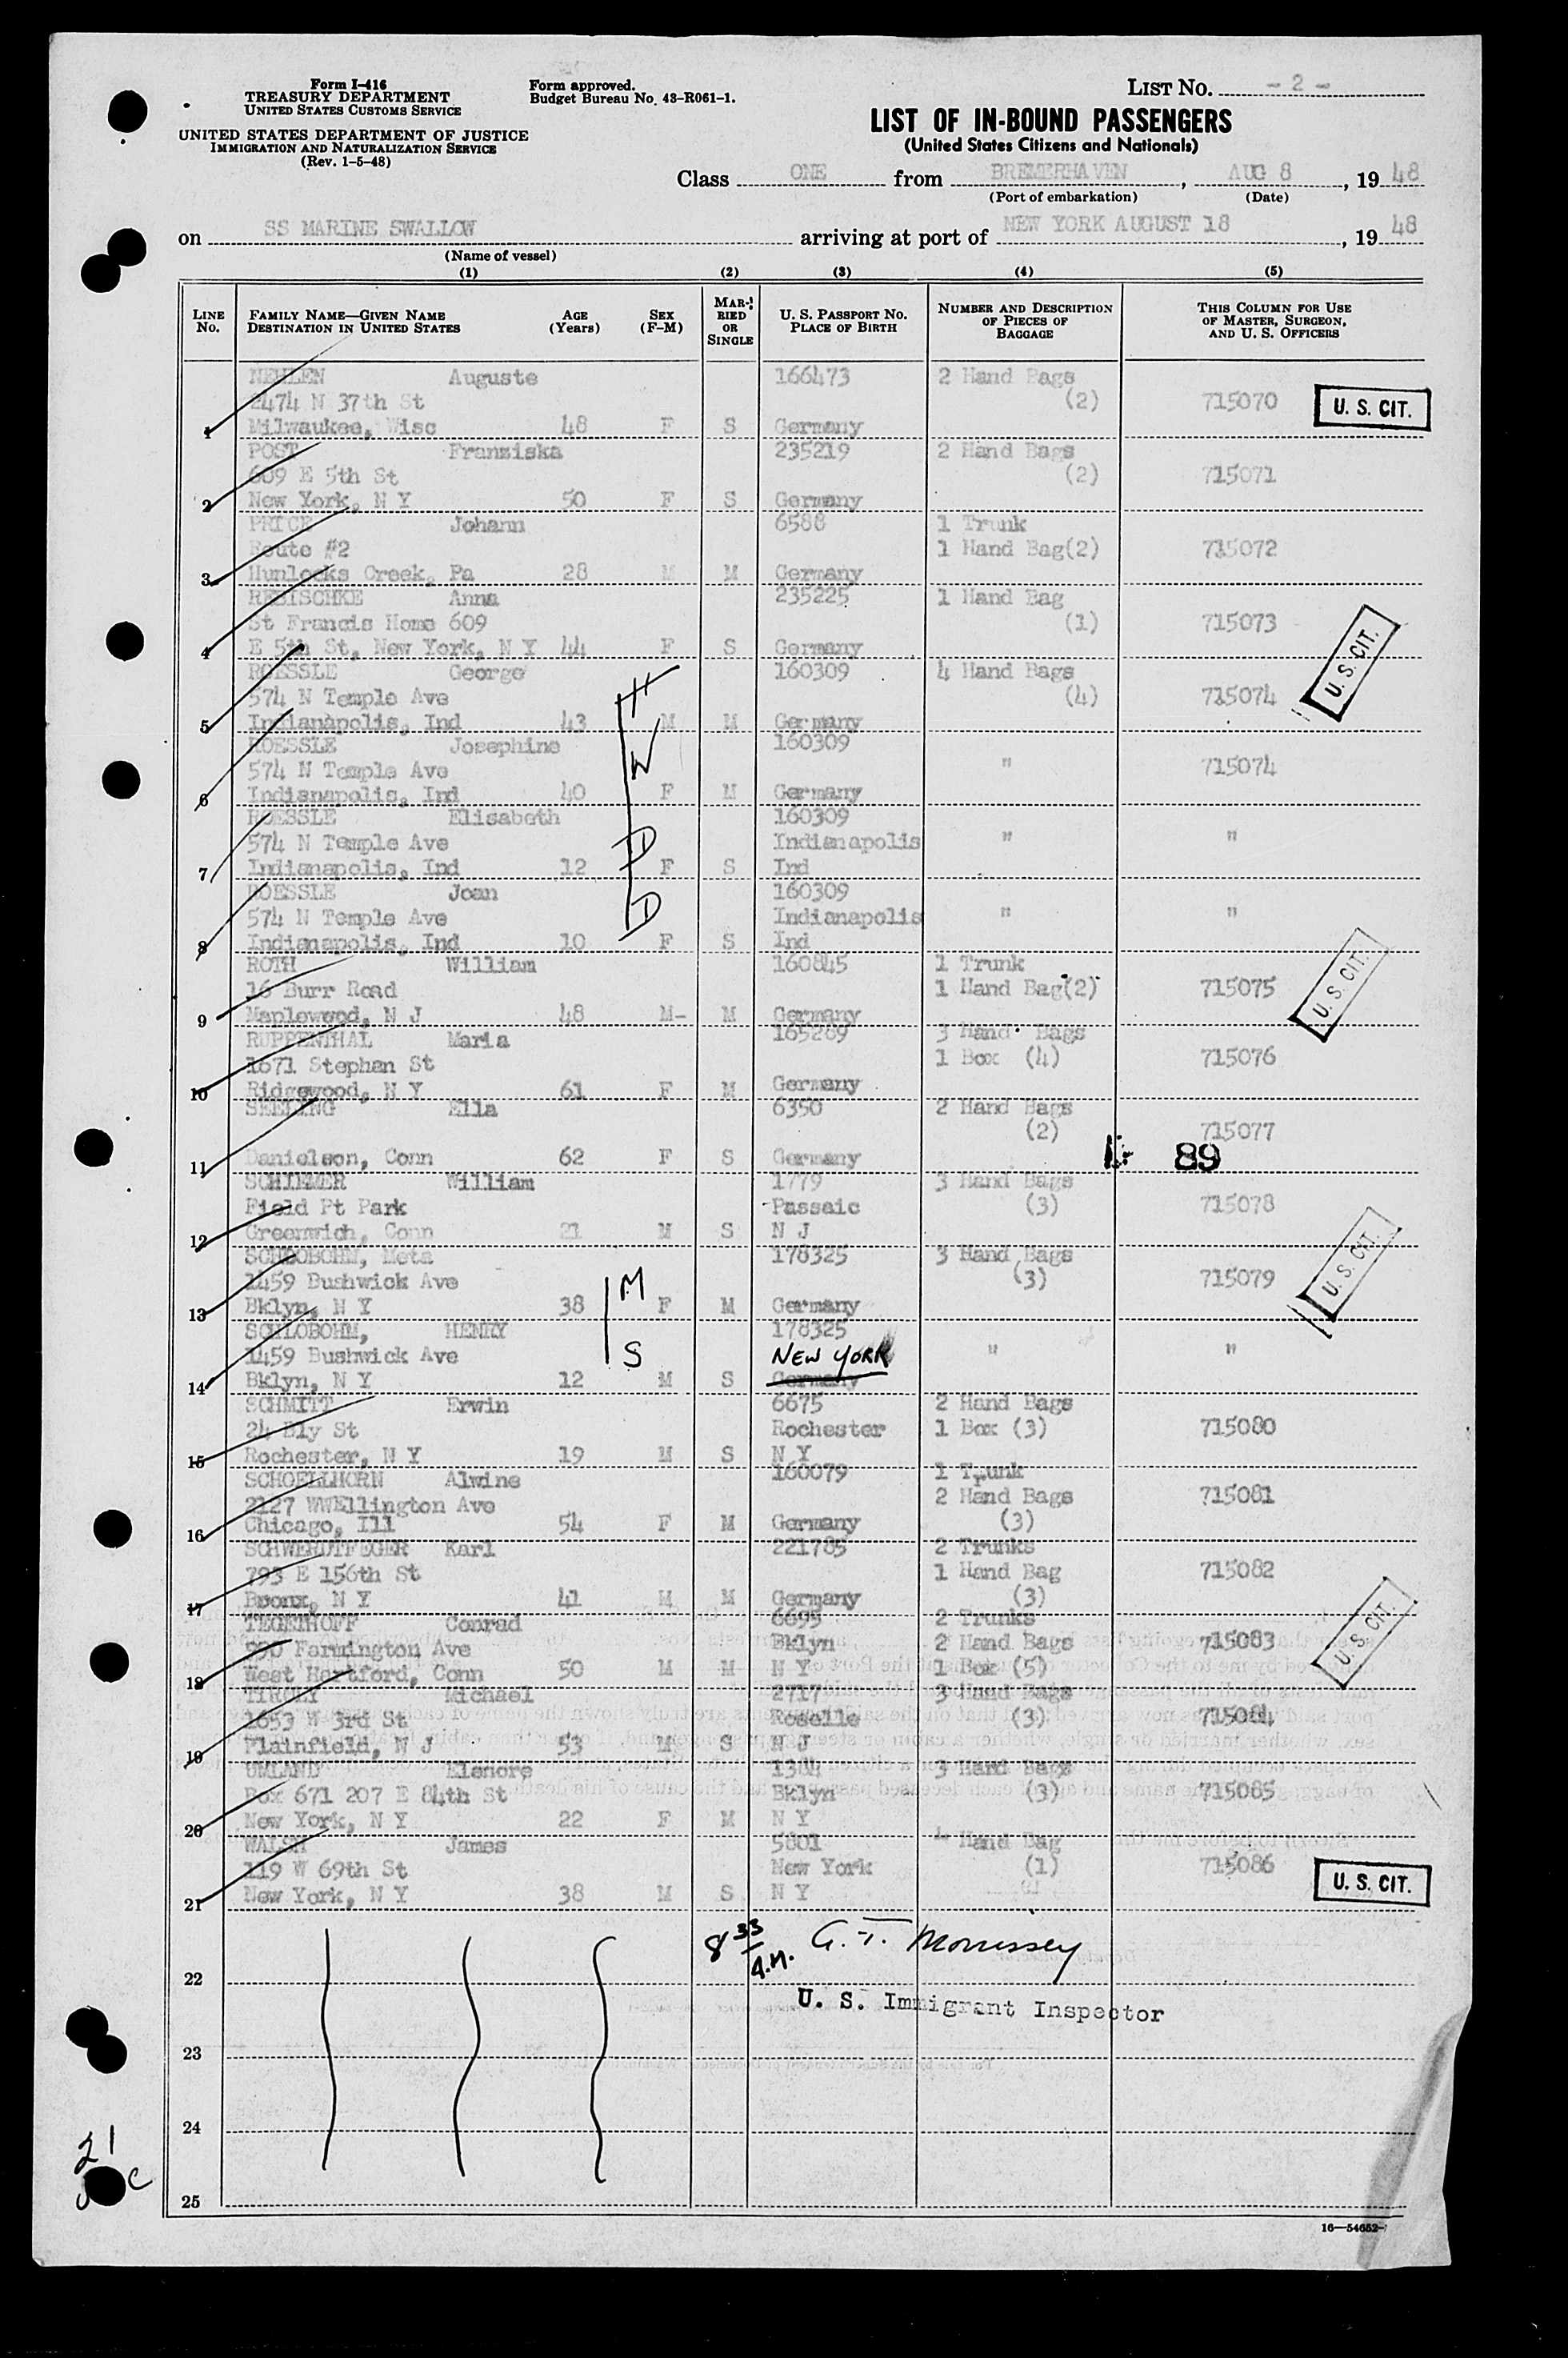 Form I-416
TREASURY DEPARTMENT
UNITED STATES CUSTOMS SERVICE
UNITED STATES DEPARTMENT OF JUSTICE
IMMIGRATION AND NATURALIZATION SERVICE
(Rev. 1-5-48)
Form approved.
Budget Bureau No. 43-R061-1.
LIST NO. - 2 -
LIST OF IN-BOUND PASSENGERS
(United States Citizens and Nationals)
Class ONE from BREMERHAVEN, AUG 8, 19 48
(Port of embarkation) (Date)
on SS MARINE SWALLOW arriving at port of NEW YORK AUGUST 18, 19 48
(Name of vessel)
(1) (2) (3) (4) (5)
LINE No. FAMILY NAME—GIVEN NAME DESTINATION IN UNITED STATES AGE (Years) SEX (F-M) MARRIED OR SINGLE U. S. PASSPORT NO. PLACE OF BIRTH NUMBER AND DESCRIPTION OF PIECES OF BAGGAGE THIS COLUMN FOR USE OF MASTER, SURGEON, AND U. S. OFFICERS
NEHLEN Auguste 166473 2 Hand Bags
2474 N 37th St (2) 715070 U. S. CIT.
1 Milwaukee, Wisc 48 F S Germany
POST Franziska 235219 2 Hand Bags
609 E 5th St (2) 715071
2 New York, N Y 50 F S Germany
PRICE Johann 6588 1 Trunk
Route #2 1 Hand Bag(2) 715072
3 Hunlocks Creek, Pa 28 M M Germany
REBISCHKE Anna 235225 1 Hand Bag
St Francis Home 609 (1) 715073 U. S. CIT.
4 E 5th St, New York, N Y 44 F S Germany
ROESSLE George 160309 4 Hand Bags
574 N Temple Ave H (4) 715074
5 Indianapolis, Ind 43 M M Germany
ROESSLE Josephine 160309
574 N Temple Ave W " 715074
6 Indianapolis, Ind 40 F M Germany
ROESSLE Elisabeth 160309
574 N Temple Ave D Indianapolis " "
7 Indianapolis, Ind 12 F S Ind
ROESSLE Joan 160309
574 N Temple Ave D Indianapolis " "
8 Indianapolis, Ind 10 F S Ind
ROTH William 160845 1 Trunk
16 Burr Road 1 Hand Bag(2) 715075 U. S. CIT.
9 Maplewood, N J 48 M- M Germany
RUPPENTHAL Maria 165289 3 Hand Bags
1671 Stephan St 1 Box (4) 715076
10 Ridgewood, N Y 61 F M Germany
SEELING Ella 6350 2 Hand Bags
(2) 715077
11 Danielson, Conn 62 F S Germany 89
SCHIEMER William 1779 3 Hand Bags
Field Pt Park Passaic (3) 715078
12 Greenwich, Conn 21 M S N J
SCHLOBOHM, Meta 178325 3 Hand Bags
1459 Bushwick Ave M (3) 715079 U. S. CIT.
13 Bklyn, N Y 38 F M Germany
SCHLOBOHM, HENRY 178325
1459 Bushwick Ave S NEW YORK " "
14 Bklyn, N Y 12 M S Germany
SCHMITT Erwin 6675 2 Hand Bags
24 Ely St Rochester 1 Box (3) 715080
15 Rochester, N Y 19 M S N Y
SCHOELLHORN Alwine 160079 1 Trunk
2127 WWEllington Ave 2 Hand Bags 715081
16 Chicago, Ill 54 F M Germany (3)
SCHWERDTFEGER Karl 221785 2 Trunks
793 E 156th St 1 Hand Bag 715082
17 Bronx, N Y 41 M M Germany (3)
TEGETHOFF Conrad 6695 2 Trunks
990 Farmington Ave Bklyn 2 Hand Bags 715083 U. S. CIT.
18 West Hartford, Conn 50 M M N Y 1 Box (5)
Michael 2717 3 Hand Bags
1653 W 3rd St Roselle (3) 715084
19 Plainfield, N J 53 M S N J
UMLAND Elenore 1384 3 Hand Bags
Box 671 207 E 84th St Bklyn (3) 715085
20 New York, N Y 22 F M N Y
WALSH James 5801 Hand Bag
119 W 69th St New York (1) 715086
21 New York, N Y 38 M S N Y U. S. CIT.
8 33 A.M. G. T. Morrissey
22
U. S. Immigrant Inspector
23
24
21
C
25
16—54652-